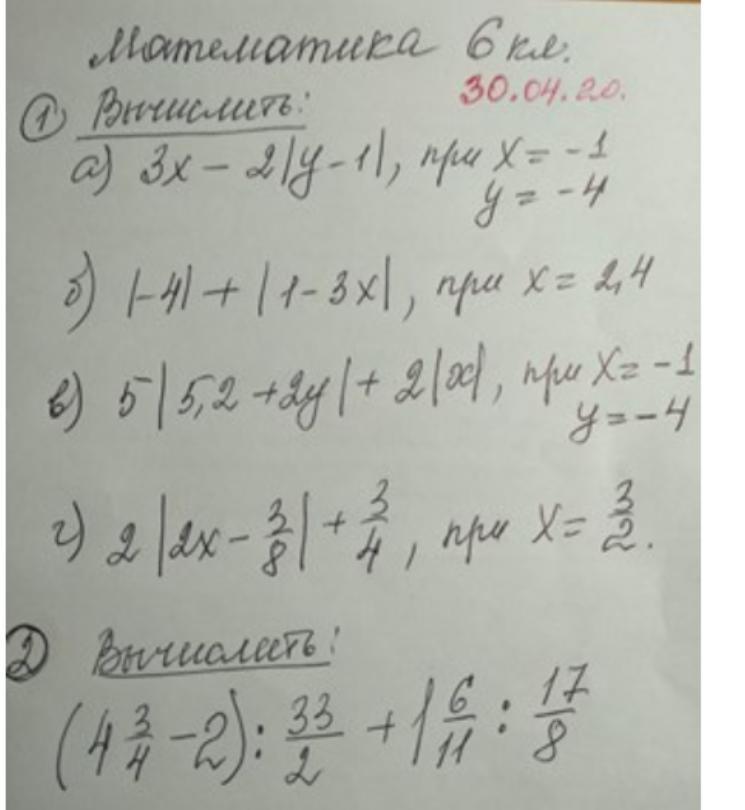 Математика 6 кл.
30.04.20.
① Вычислить:
а) 3x - 2|y - 1|, при x = -1
y = -4
б) |-4| + |1 - 3x|, при x = 2,4
в) 5|5,2 + 2y| + 2|x|, при x = -1
y = -4
г) 2|2x - 3/8| + 3/4, при x = 3/2.
② Вычислить:
(4 3/4 - 2) : 33/2 + 1 6/11 : 17/8